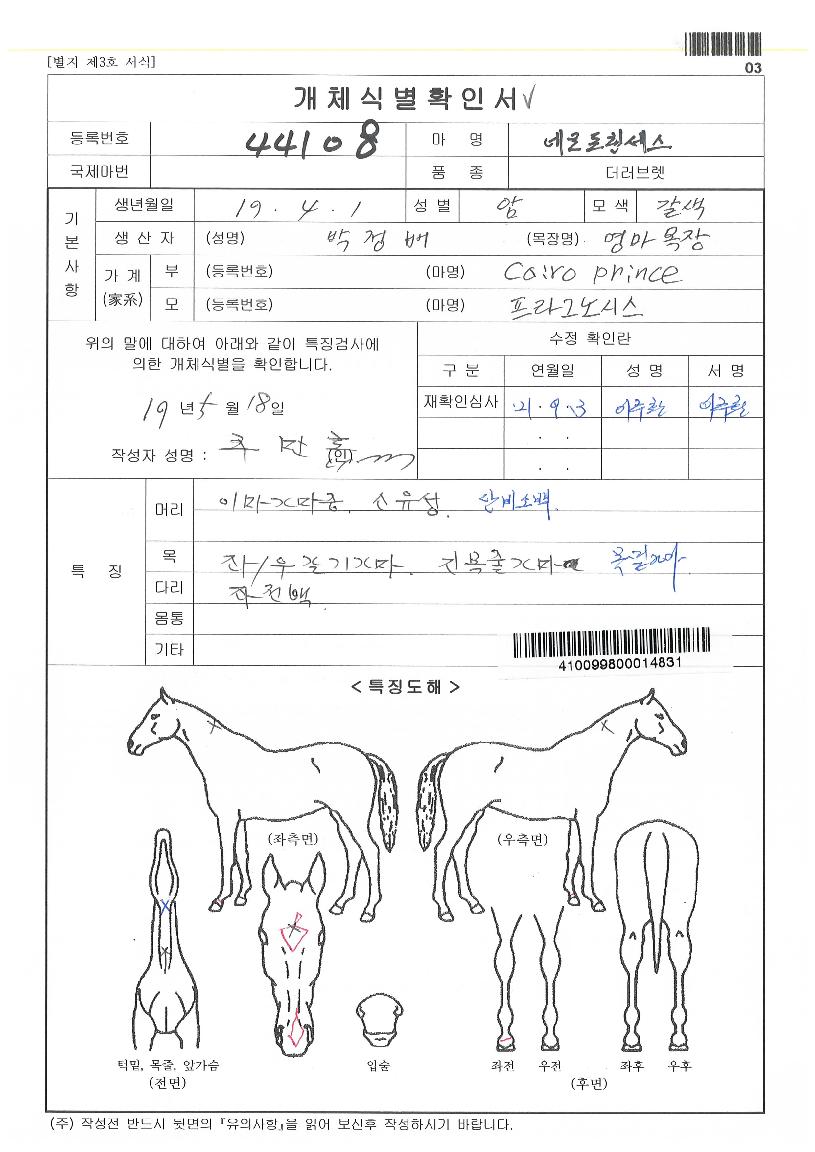 [별지 제3호 서식]
03
개체식별확인서✓
등록번호 44108 마 명 네로프린세스
국제마번 품 종 더러브렛
기본사항
생년월일 19. 4. 1 성 별 암 모 색 갈색
생 산 자 (성명) 박정배 (목장명) 영마목장
가 계 (家系) 부 (등록번호) (마명) Cairo prince
모 (등록번호) (마명) 프라그노시스
위의 말에 대하여 아래와 같이 특징검사에
의한 개체식별을 확인합니다.
19 년 5 월 18 일
작성자 성명 : (인)
수정 확인란
구 분 연월일 성 명 서 명
재확인심사 21. 9. 13
. .
. .
특 징
머리 이마가마중. 소유성. 단비소백.
목 좌/우갈기가마. 목줄가마 목밑가마
다리 좌전백
몸통
기타
410099800014831
< 특징도해 >
(좌측면) (우측면)
턱밑, 목줄, 앞가슴
(전면)
입술
좌전 우전 좌후 우후
(후면)
(주) 작성전 반드시 뒷면의 『유의사항』을 읽어 보신후 작성하시기 바랍니다.